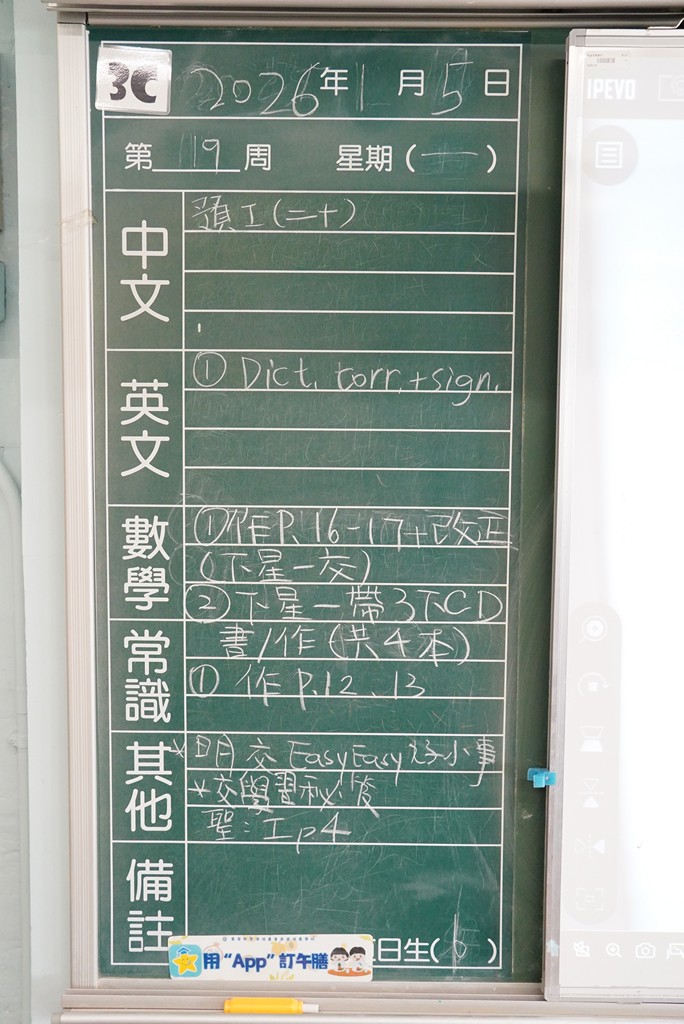 3C 2026年1月5日
第19周 星期(一)
中文
預工(二十)
英文
① Dict. corr.+sign.
數學
①作P.16-17+改正
(下星一交)
②下星一帶3下CD
書/作(共4本)
常識
① 作P.12、13
其他
*明交 EasyEasy好小事
*交學習秘
聖:工p.4
備註
用“App”訂午膳
日生( )
IPEVO